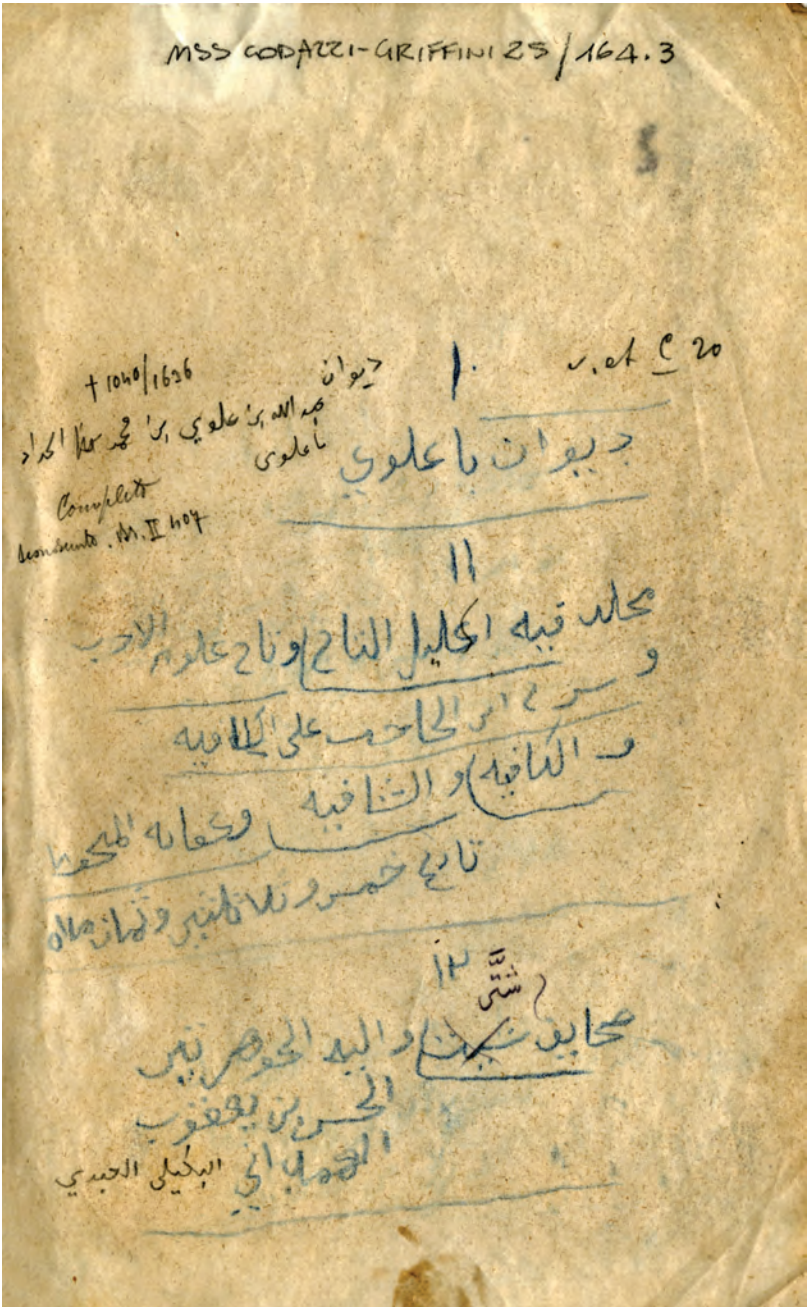 MSS CODAZZI-GRIFFINI 25/164.3
١٠
v. et C 20
+ 1040/1626
ديوان
عبد الله بن علوي بن محمد الحداد
باعلوي
Completo
Br. II 407
ديوان باعلوي
١١
مجلد فيه التاج وتاج علوم الادب
و ابن الحاجب على الكافيه
و الكافيه والشافيه
تاريخ خمس وثلاثين وثمان مائه
١٢
شتى
صحايف واليه الجوهرتين
الحسن بن يعقوب
الهمداني البكيلي العبدي